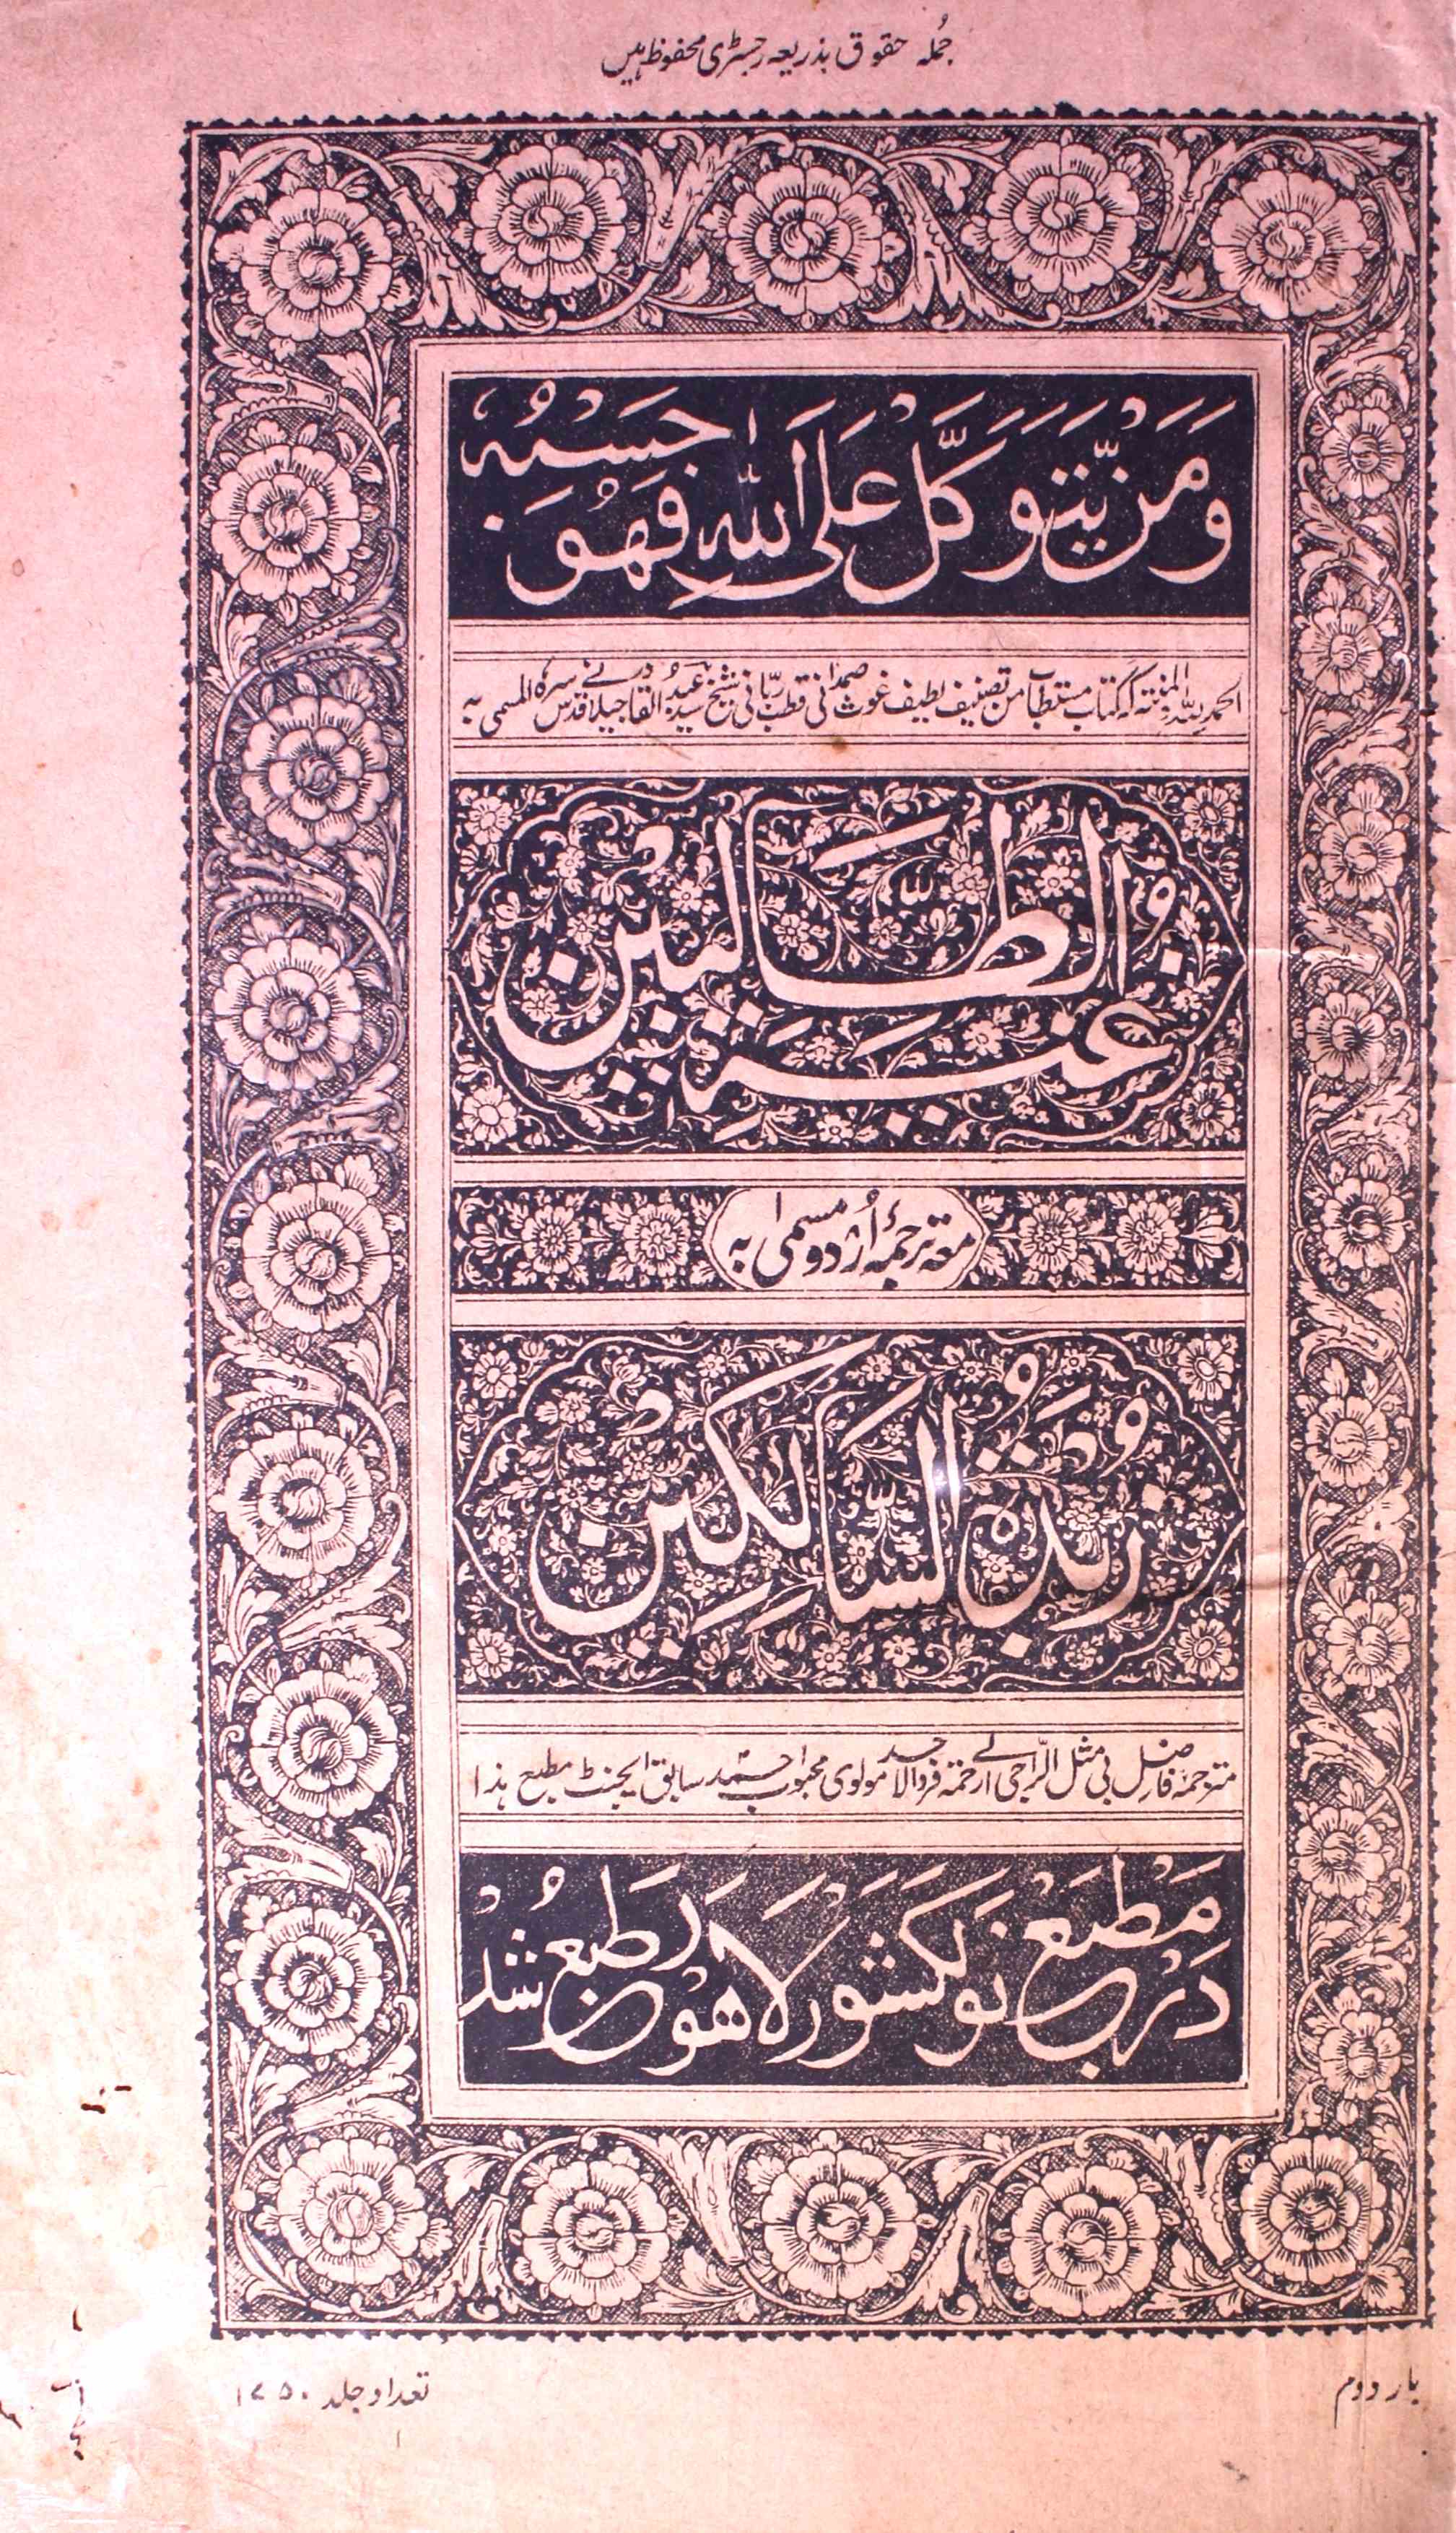 جُملہ حقوق بذریعہ رجسٹری محفوظ ہیں
وَمَنْ يَّتَوَكَّلْ عَلَى اللّٰهِ فَهُوَ حَسْبُهٗ
الحمد للہ والمنتہ کہ کتاب مستطاب من تصنیف لطیف غوث صمدانی قطب ربّانی شیخ سید عبد القادر جیلانی قدس سرہ المسمی بہ
غُنْيَةُ الطَّالِبِيْنَ
معہ ترجمۂ اُردو مسمی بہ
زُبْدَةُ السَّالِكِيْنَ
مترجمہ فاضل بی مثل الراجی الے رحمتہ فرد الاحد مولوی محبوب احمد سابق ایجنٹ مطبع ہذا
دَرْ مَطْبَعْ نَوَلکشور لَاهَوْر طَبع شُدْ
بار دوم
تعداد جلد ۱۷۵۰